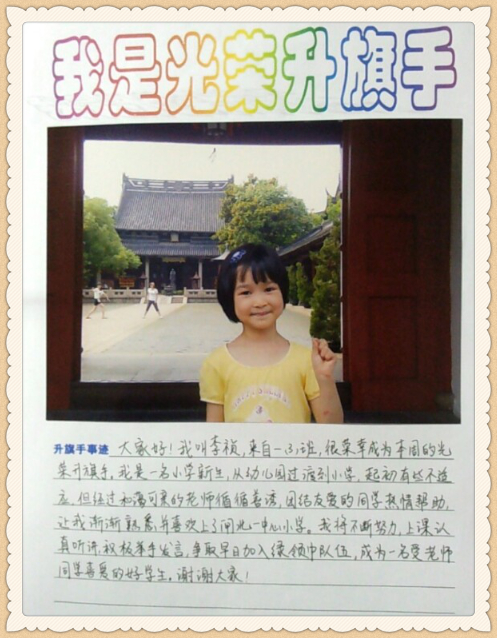 我是光荣升旗手
升旗手事迹 大家好！我叫李祯，来自一3班，很荣幸成为本周的光
荣升旗手，我是一名小学新生，从幼儿园过渡到小学，起初有些不适
应，但经过和蔼可亲的老师循循善诱，团结友爱的同学热情帮助，
让我渐渐熟悉并喜欢上了闸北一中心小学。我将不断努力，上课认
真听讲，积极举手发言，争取早日加入绿领巾队伍，成为一名受老师
同学喜爱的好学生，谢谢大家！